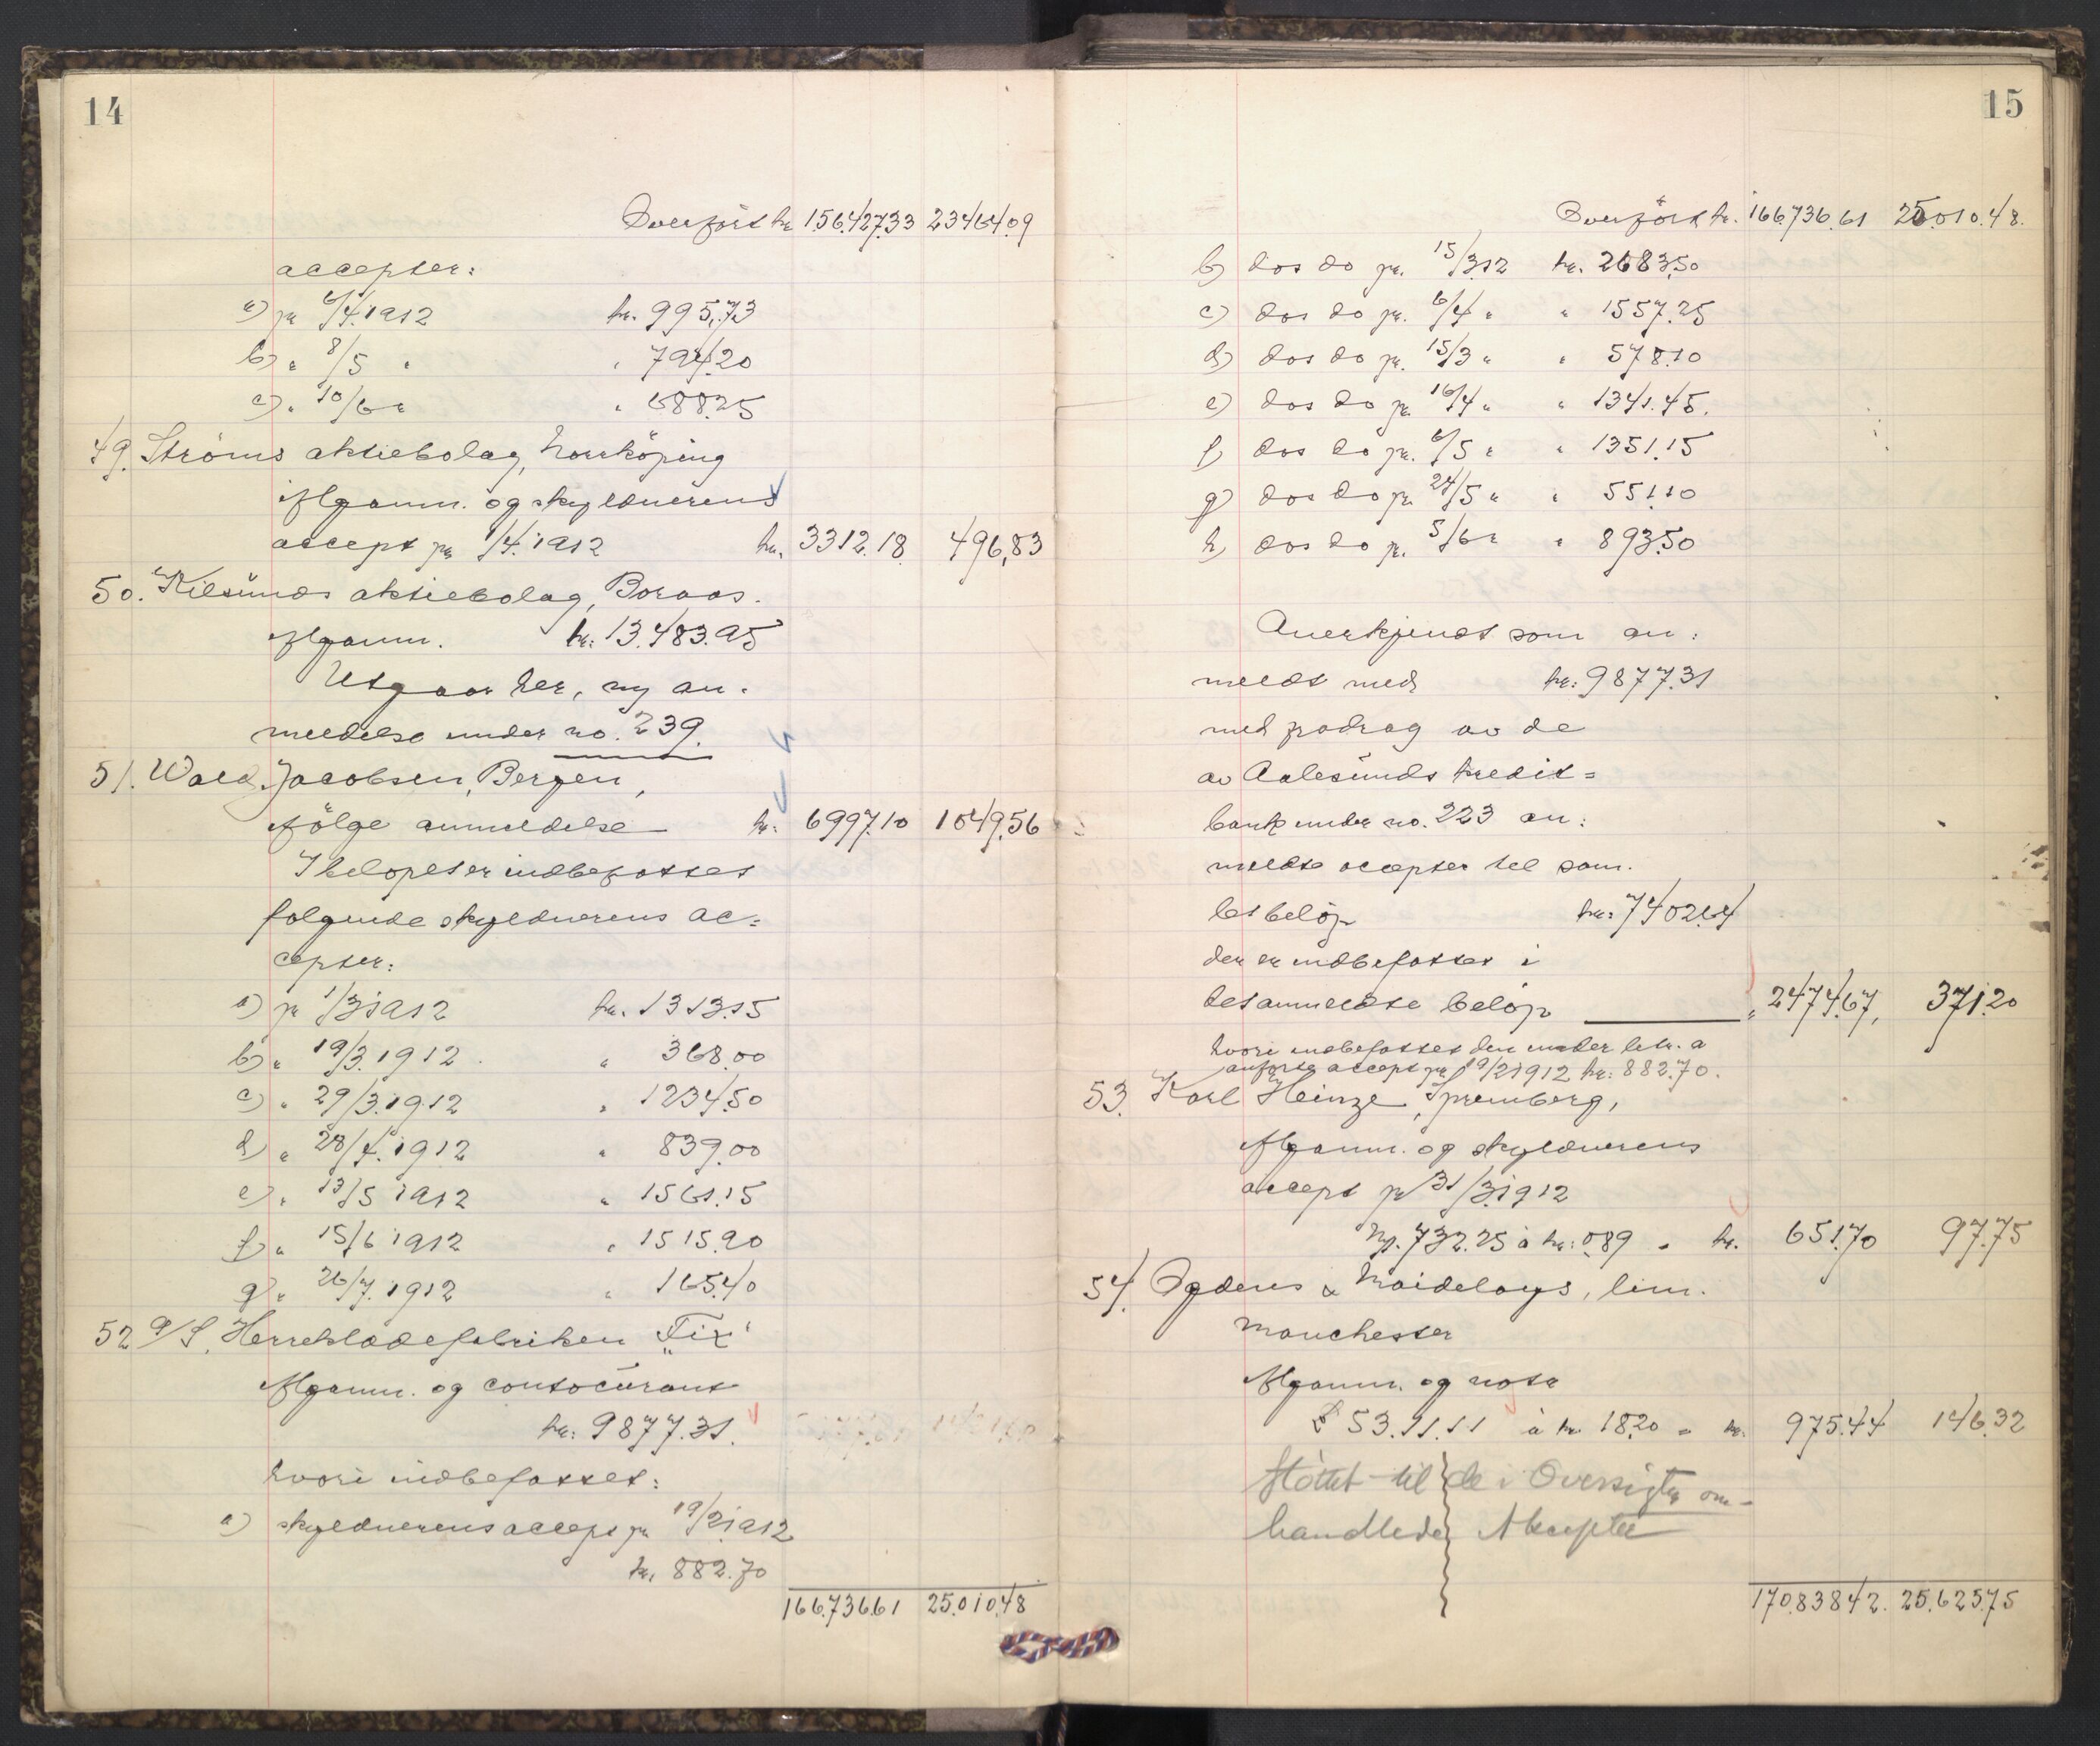 14
Overført kr. 156.427.33 23464.09
accepter:
a) pr 6/4. 1912 kr. 995,73
b) " 8/5 " " 794.20
c) " 10/6 " " 688.25
49. Ströms aktiebolag, Norrköping
iflganm. og skyldnerens
accept pr 1/4. 1912 kr. 3312.18 496,83
50. Kilsunds aktiebolag, Boraas.
iflganm. kr: 13.483.95
Utgaar her, ny an-
meldelse under no. 239.
51. Wald. Jacobsen, Bergen,
ifölge anmeldelse kr: 6997.10 1049.56
I belöpet er indbefattet
følgende skyldnerens ac-
cepter:
a) pr 1/3 1912 kr. 1313.15
b) " 19/3. 1912 " 368.00
c) " 29/3. 1912 " 1234.50
d) " 28/4. 1912 " 839.00
e) " 13/5 1912 " 1561.15
f) " 15/6 1912 " 1515.90
g) " 26/7. 1912 " 165.40
52. A/S. Herreklædefabriken "Fix"
iflganm. og contocurant
kr: 9877.31.
hvori indbefattet:
a) skyldnerens accept pr 19/2 1912
kr. 882.70
166.736.61 25.010.48
15
Overført kr. 166.736.61 25.010.48.
b) dos do pr. 15/3 12 kr. 2683.50
c) dos do pr. 6/4 " " 1557.25
d) dos do pr. 15/3 " " 578.10
e) dos do pr. 16/4 " " 1341.45.
f) dos do pr. 6/5 " " 1351.15
g) dos do pr 24/5 " " 551.10
h) dos do pr. 5/6 " " 893.50
Anerkjendt som an-
meldt med kr: 9877.31
med fradrag av de
av Aalesunds kredit-
bank under no. 223 an-
meldte accepter til sam-
let belöp kr: 7402.64
der er indbefattet i
det anmeldte belöp " 2474.67, 371.20
hvori indbefattet den under litr. a
anförte accept pr 19/2 1912 kr: 882.70.
53. Karl Heinze, Spremberg,
iflganm. og skyldnerens
accept pr 31/3 1912
Mk. 732.25 à kr: 0.89 = kr. 651.70 97.75
54. Ogdens & Madeleys, lim.
Manchester
iflganm. og nota
£ 53.11.11 à kr 18.20 = kr. 975.44 146.32
Støttet til de i Oversigten om-
handlede Akcepter
170.838.42. 25.625.75